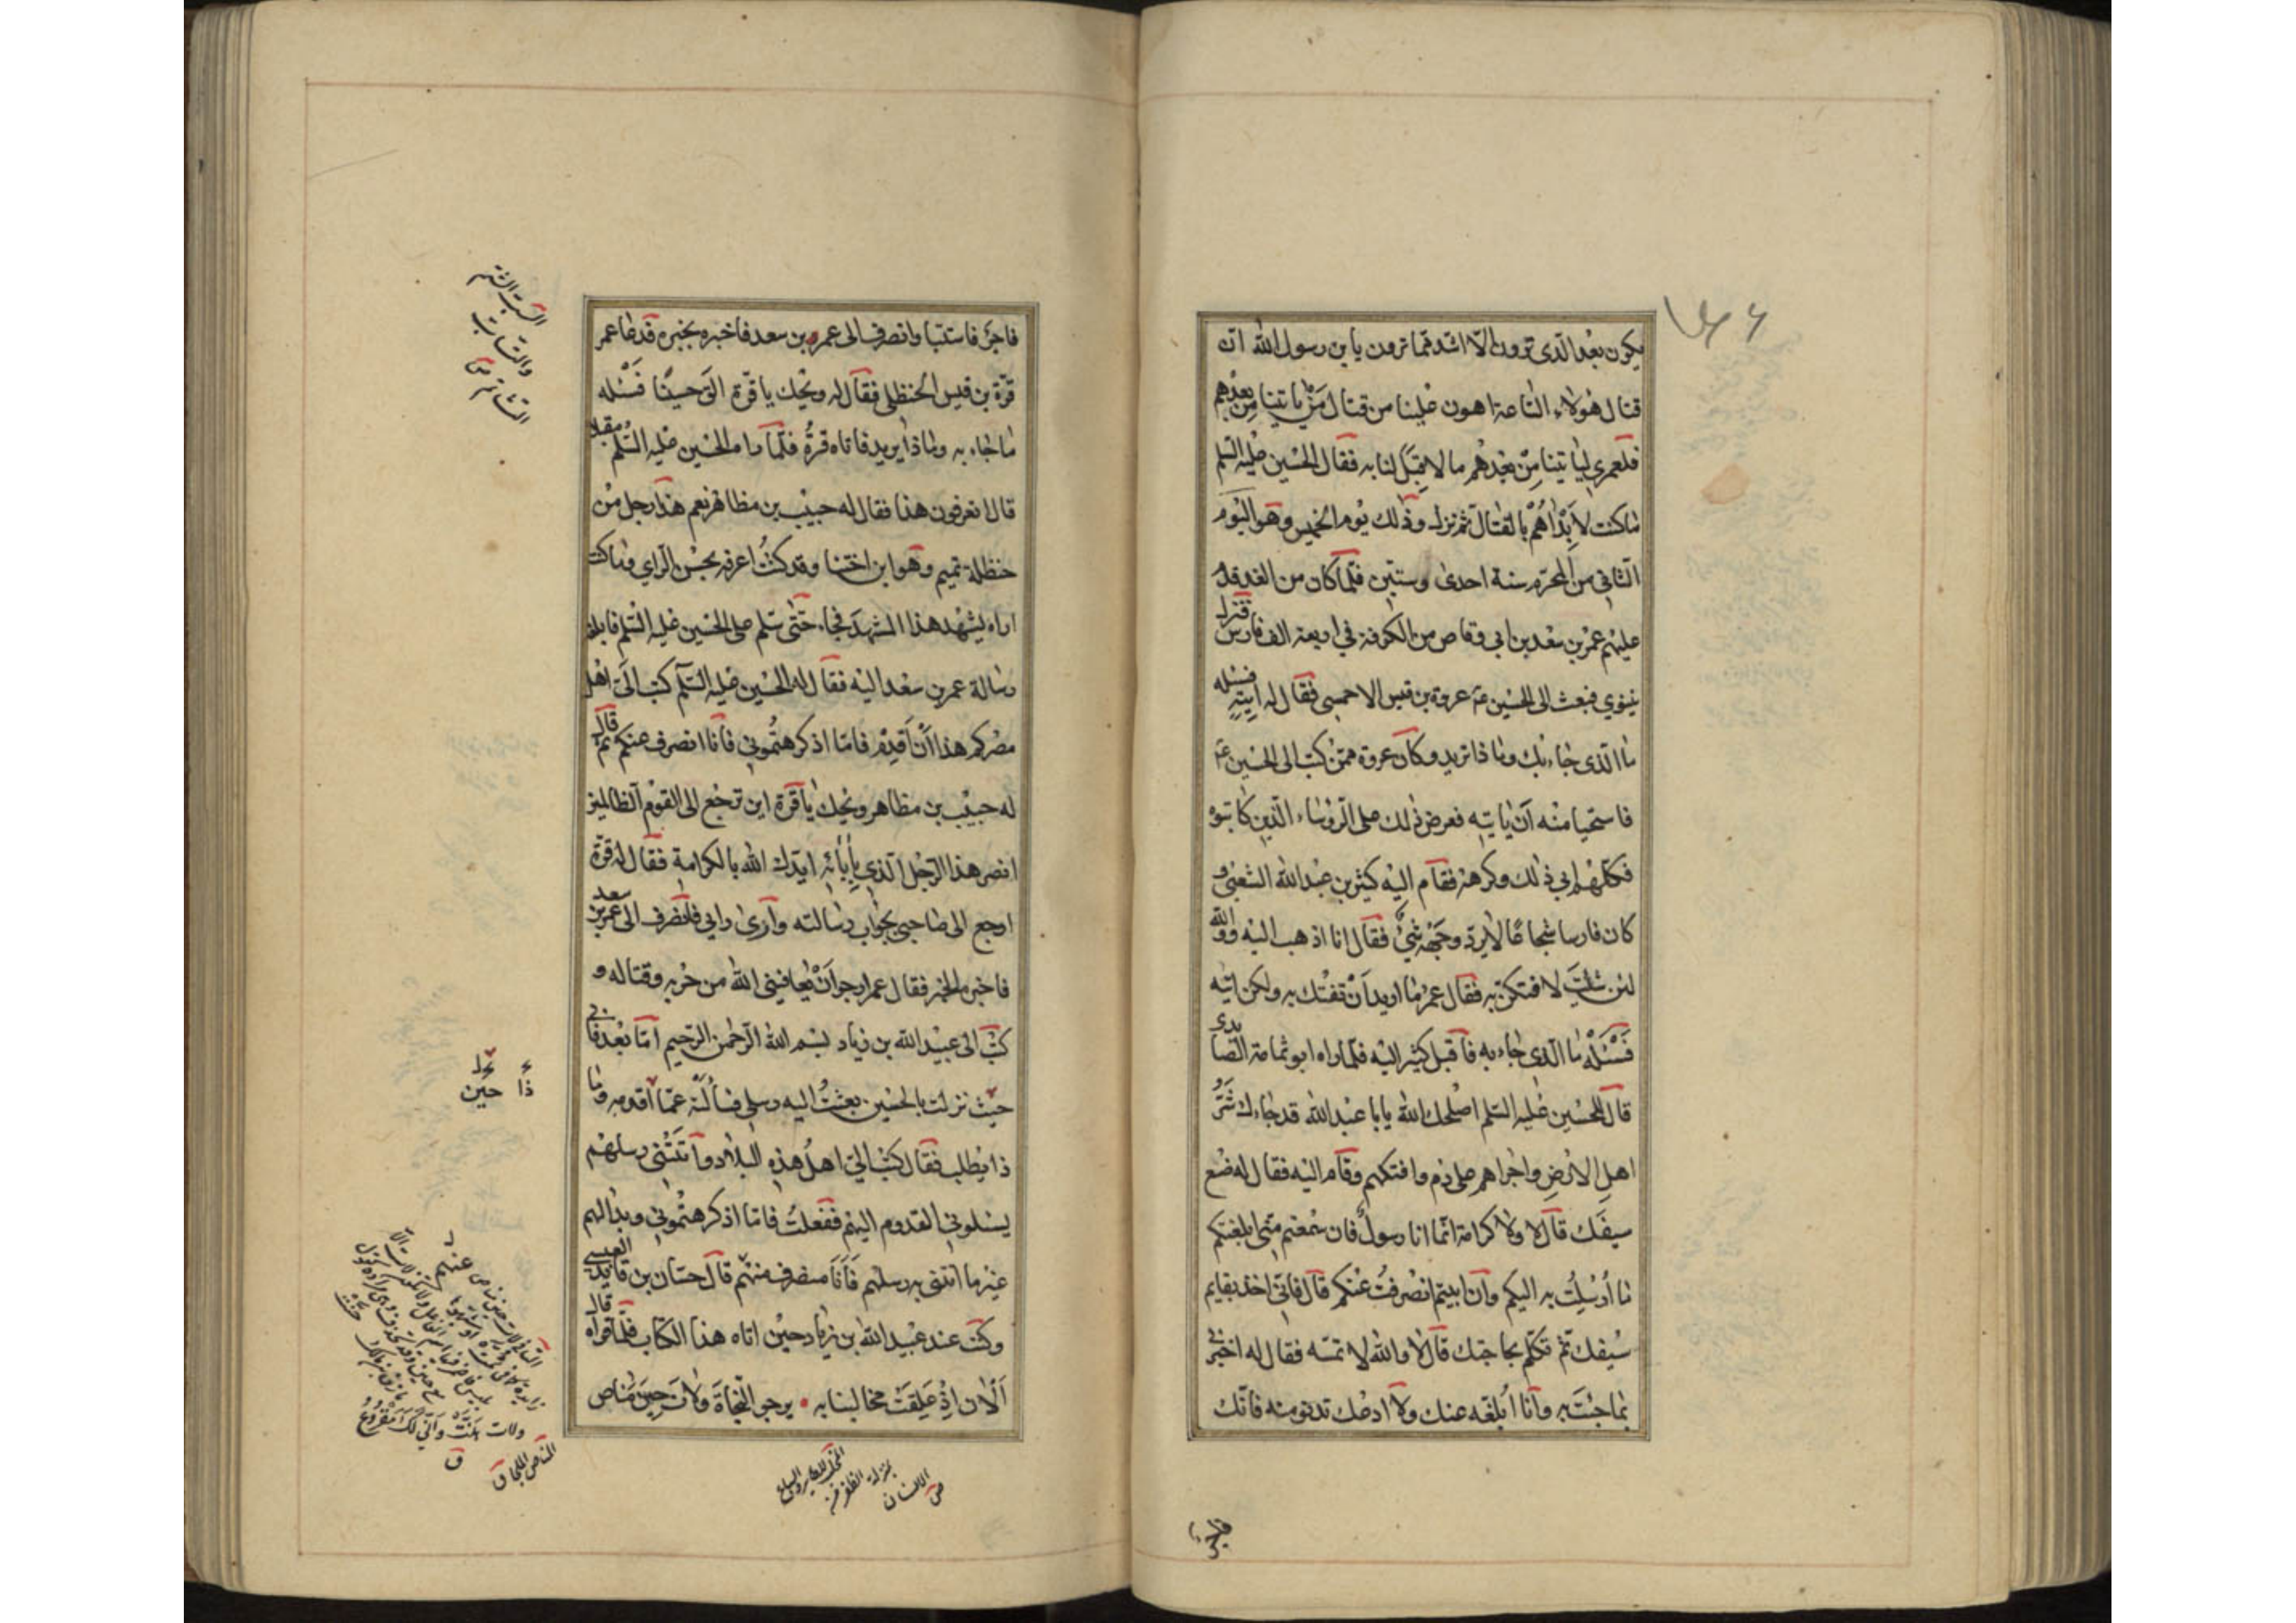 يكون بعد الذي ترون الا اشد مما ترون يا بن رسول الله ان
قتال هولاء الساعة اهون علينا من قتال من ياتينا من بعدهم
فلعمري لياتينا من بعدهم ما لا قبل لنا به فقال الحسين عليه السلم
ما كنت لابداهم بالقتال ثم نزل وذلك يوم الخميس وهو اليوم
الثاني من المحرم سنة احدى وستين فلما كان من الغد قدم
عليهم عمر بن سعد بن ابي وقاص من الكوفة في اربعة الف فارس فنزل
بنينوي فبعث الى الحسين ع عروة بن قيس الاحمسي فقال له ايته فسئله
ما الذي جاء بك وما ذا تريد وكان عروة ممن كتب الى الحسين ع
فاستحيا منه ان ياتيه فعرض ذلك على الروساء الذين كاتبوه
فكلهم ابي ذلك وكرهه فقام اليه كثير بن عبد الله الشعبي و
كان فارسا شجاعا لا يرد وجهه شئ فقال انا اذهب اليه ووالله
لئن شئت لافتكن به فقال عمر ما اريد ان تفتك به ولكن ايته
فسئله ما الذي جاء به فاقبل كثير اليه فلما راه ابو ثمامة الصايدي
قال للحسين عليه السلم اصلحك الله يا با عبد الله قد جاءك شر
اهل الارض واجراهم على دم وافتكهم وقام اليه فقال له ضع
سيفك قال لا ولا كرامة انما انا رسول فان سمعتم مني ابلغتكم
ما ارسلت به اليكم وان ابيتم انصرفت عنكم قال فاني اخذ بقايم
سيفك ثم تكلم بحاجتك قال لا والله لا تمسه فقال له اخبرني
بما جئت به وانا ابلغه عنك ولا ادعك تدنو منه فانك
فاجر فاستبا وانصرف الى عمر بن سعد فاخبره بخبره فدعا عمر
قرة بن قيس الحنظلي فقال له ويحك يا قرة الق حسينا فسئله
ما جاء به وماذا يريد فاتاه قرة فلما راه الحسين عليه السلم مقبلا
قال اتعرفون هذا فقال له حبيب بن مظاهر نعم هذا رجل من
حنظلة تميم وهو ابن اختنا وقد كنت اعرفه بحسن الراي وما كنت
اراه يشهد هذا المشهد فجاء حتى سلم على الحسين عليه السلم فابلغه
رسالة عمر بن سعد اليه فقال له الحسين عليه السلم كتب الي اهل
مصركم هذا ان اقدم فاما اذ كرهتموني فانا انصرف عنكم ثم قال
له حبيب بن مظاهر ويحك يا قرة اين ترجع الى القوم الظالمين
انصر هذا الرجل الذي بابائه ايدك الله بالكرامة فقال له قرة
ارجع الى صاحبي بجواب رسالته وارى رايي فانصرف الى عمر بن سعد
فاخبره الخبر فقال عمر ارجو ان يعافيني الله من حربه وقتاله و
كتب الى عبيد الله بن زياد بسم الله الرحمن الرحيم اما بعد فاني
حيث نزلت بالحسين بعثت اليه رسلي فسألته عما اقدمه وما
ذا يطلب فقال كتب الي اهل هذه البلاد واتتني رسلهم
يسئلوني القدوم اليهم ففعلت فاما اذ كرهتموني وبدا لهم
غير ما اتتني به رسلهم فانا منصرف منهم قال حسان بن قايد العبسي
وكنت عند عبيد الله بن زياد حين اتاه هذا الكتاب فلما قراه قال
الان اذ علقت مخالبنا به يرجو النجاة ولات حين مناص
السب الشتم
والتساب
التشاتم ص
حين
ولات
المناص الملجا ق